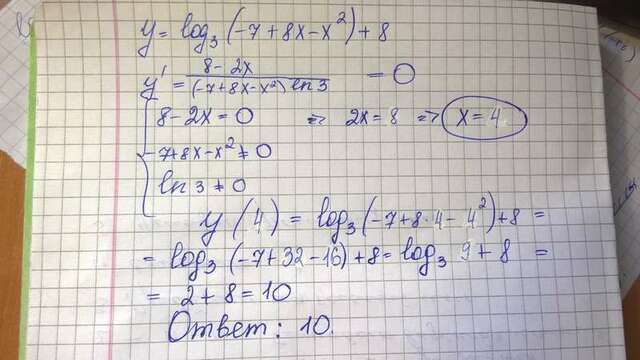 y = log₃(-7+8x-x²)+8
y' = (8-2x)/((-7+8x-x²) ln3) = 0
{ 8-2x=0 => 2x=8 => x=4
-7+8x-x²≠0
ln3≠0
y(4) = log₃(-7+8·4-4²)+8 =
= log₃(-7+32-16)+8 = log₃ 9+8 =
= 2+8=10
Ответ: 10.